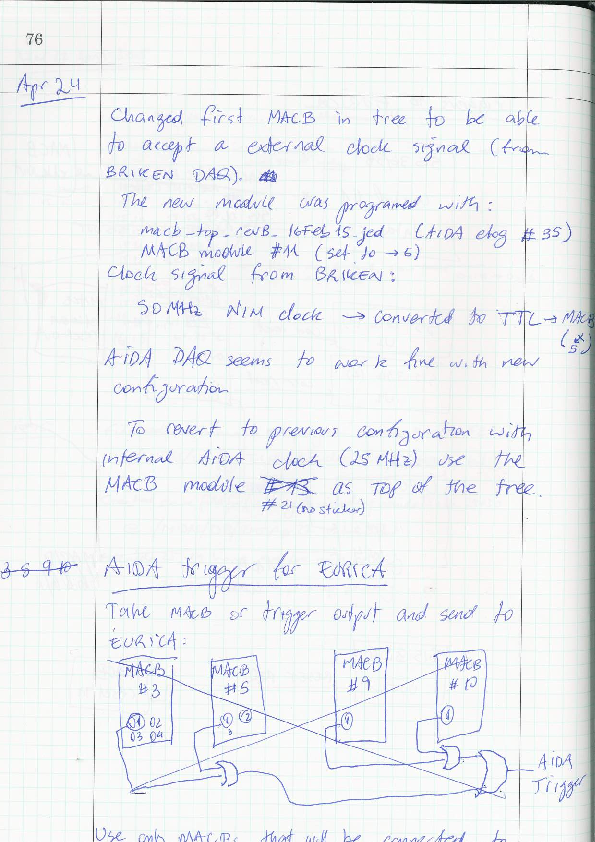 76
Apr 24
Changed first MACB in tree to be able
to accept a external clock signal (from
BRIKEN DAQ).
The new module was programed with:
macb_top_revB_16Feb15.jed (AIDA elog #35)
MACB module #11 (set to → 6)
Clock signal from BRIKEN:
50 MHz NIM clock → converted to TTL → MACB
AIDA DAQ seems to work fine with new
configuration
To revert to previous configuration with
internal AIDA clock (25 MHz) use the
MACB module #13 as TOP of the tree.
#21 (no sticker)
3 5 9 10
AIDA trigger for EURICA
Take MACB or trigger output and send to
EURICA:
MACB MACB MACB MACB
#3 #5 #9 #10
01 02
03 04
AIDA
Trigger
Use only MACBs that will be connected to